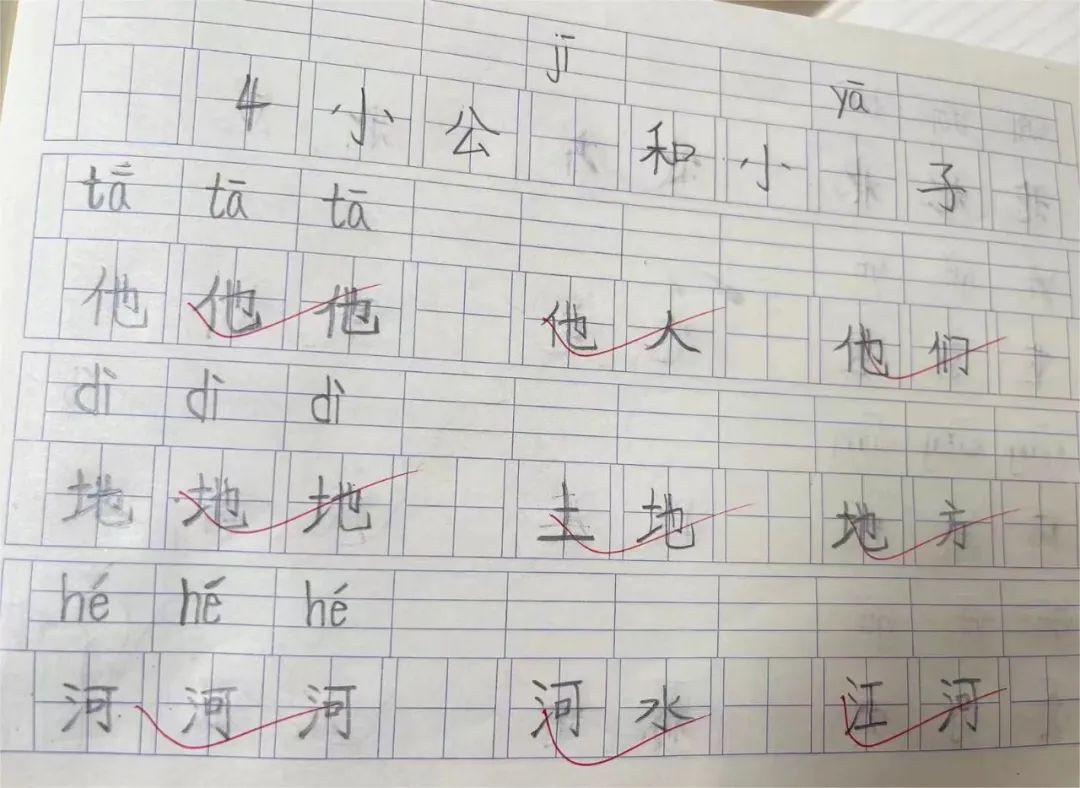 jī yā
4 小公 和小 子
tā tā tā
他 他 他 他人 他们
dì dì dì
地 地 地 土地 地方
hé hé hé
河 河 河 河水 江河